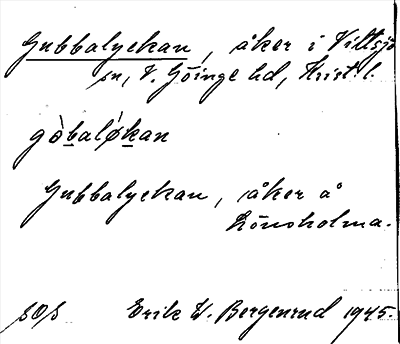 Gubbalyckan, åker i Vittsjö
sn, V. Göinge hd, Krist. l.
gòbalǿkan
Gubbalyckan, åker å
Lönsholma.
SOS Erik W. Bergenrud 1945.